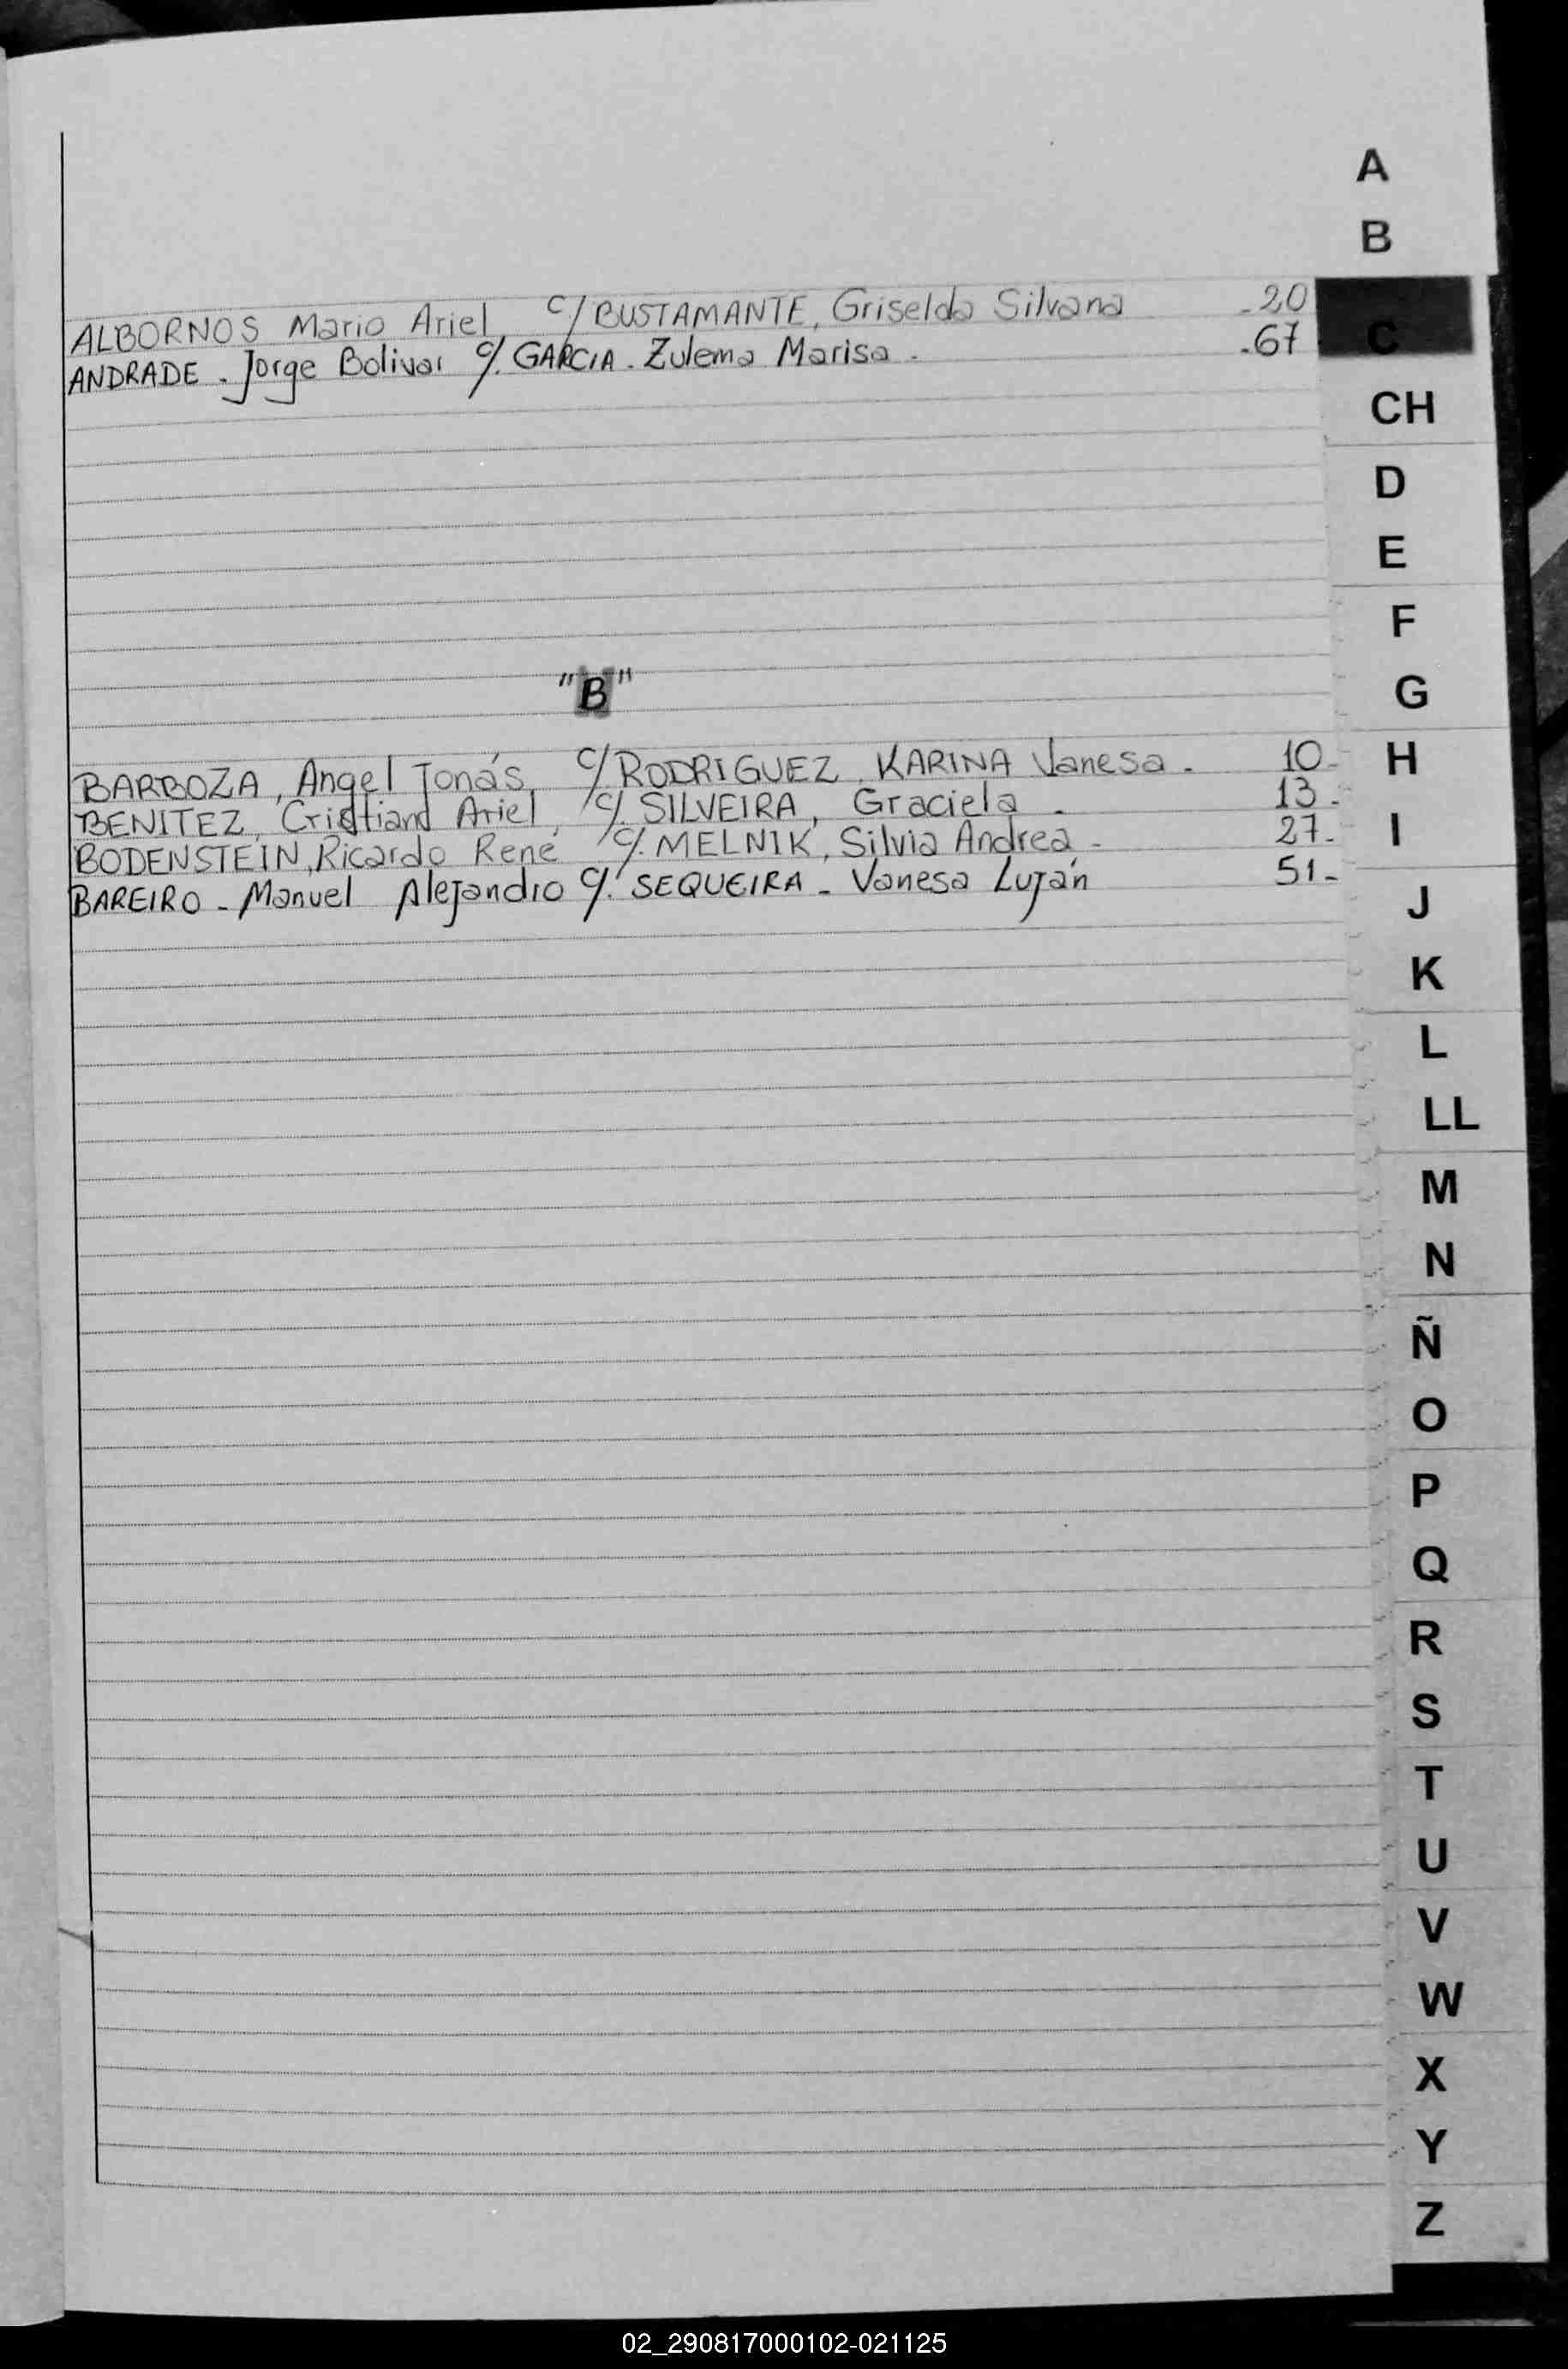 A
B
ALBORNOS Mario Ariel, C/ BUSTAMANTE, Griselda Silvana -20
C
ANDRADE - Jorge Bolivar c/. GARCIA - Zulema Marisa - -67
CH
D
E
F
G
"B"
H
BARBOZA, Angel Jonás, C/ RODRIGUEZ, KARINA Vanesa - 10-
BENITEZ, Cristiand Ariel, c/. SILVEIRA, Graciela - 13-
I
BODENSTEIN, Ricardo René c/. MELNIK, Silvia Andrea - 27-
BAREIRO - Manuel Alejandro c/. SEQUEIRA - Vanesa Luján 51-
J
K
L
LL
M
N
Ñ
O
P
Q
R
S
T
U
V
W
X
Y
Z
02_290817000102-021125